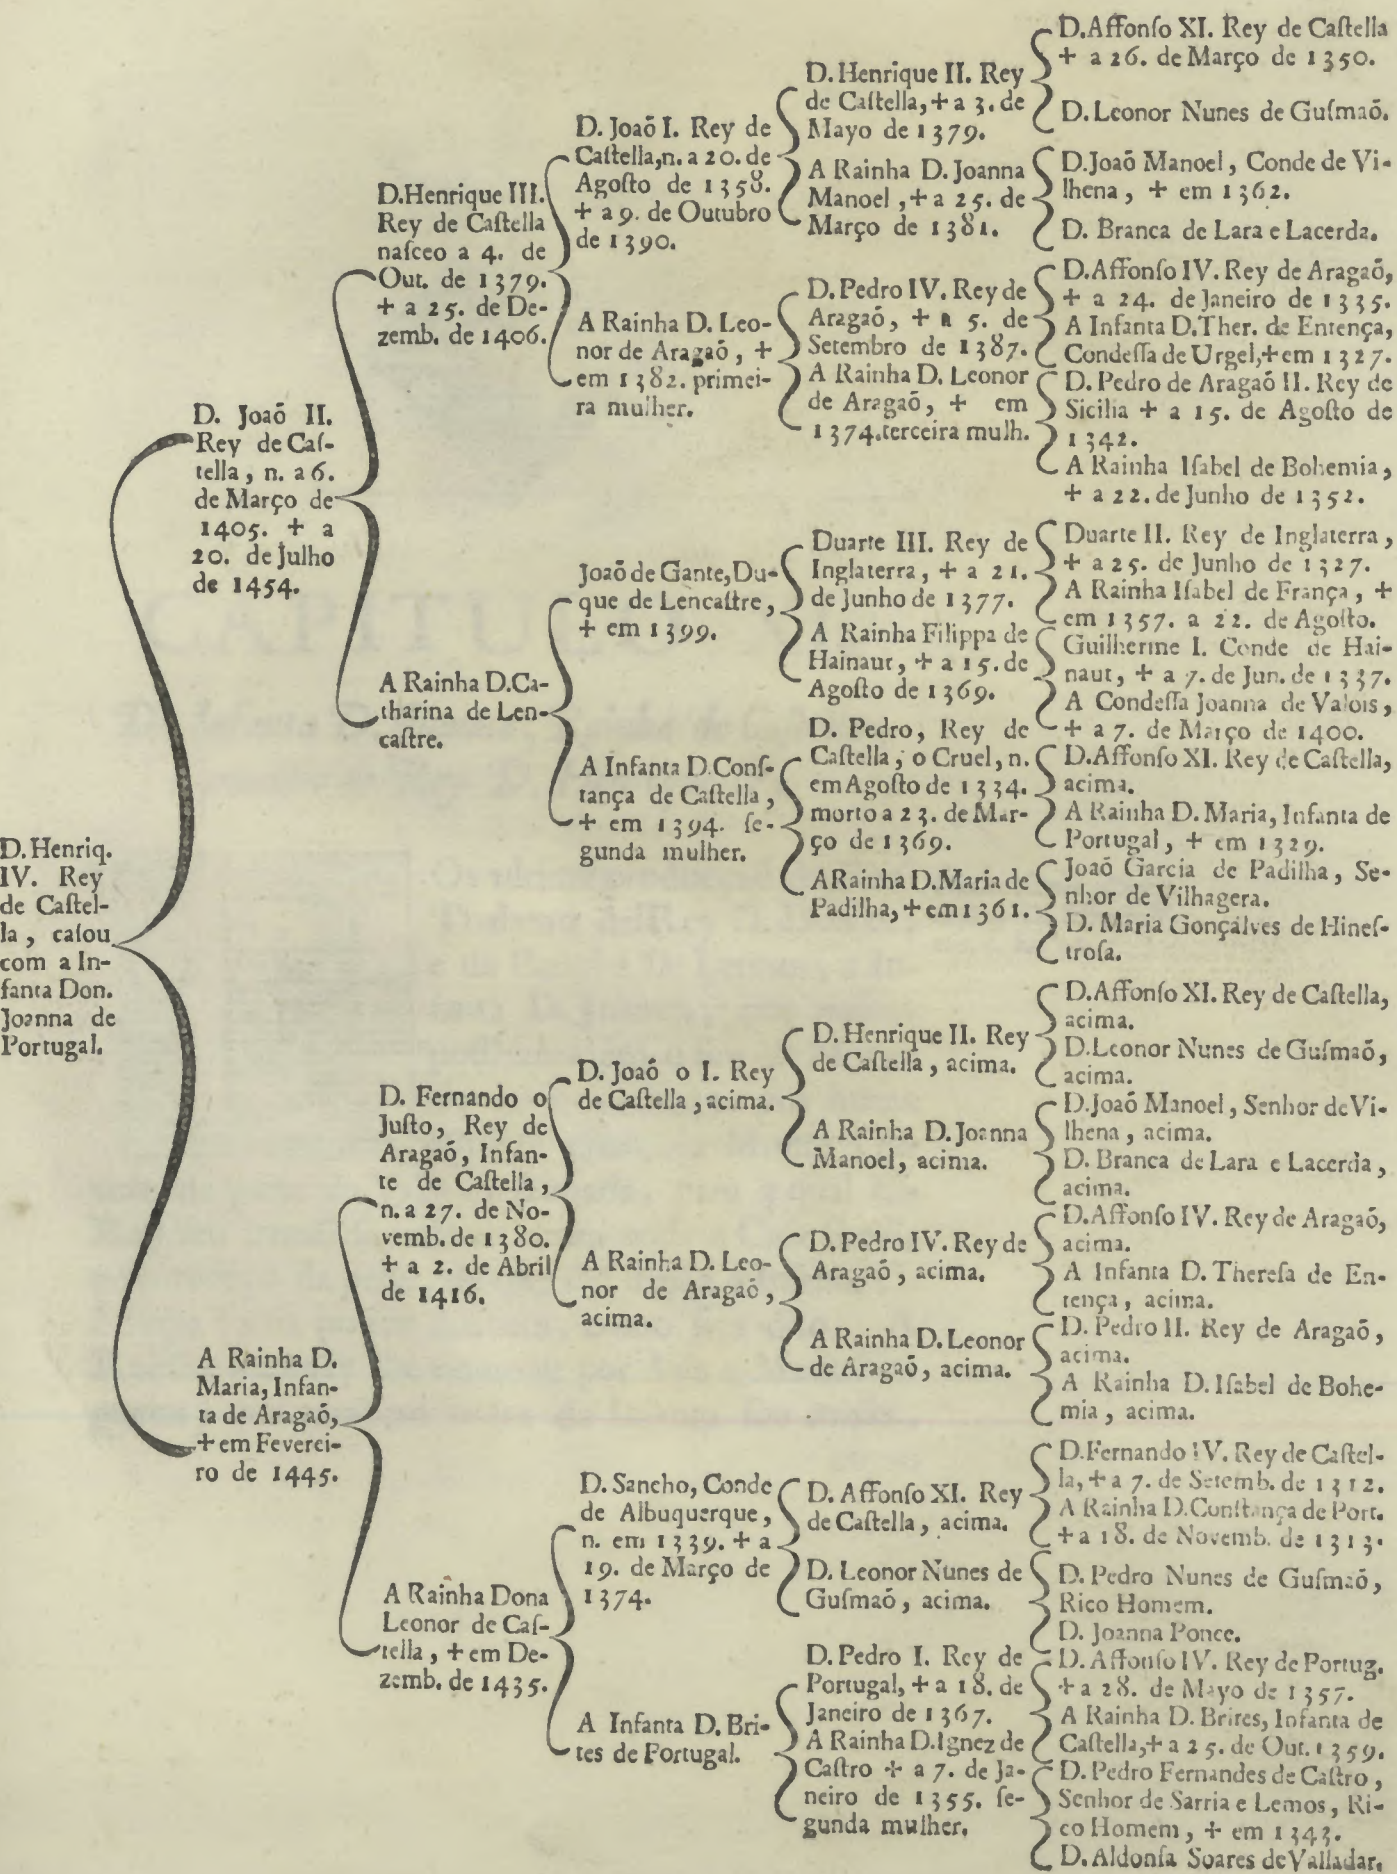 D.Henriq.
IV. Rey
de Caſtel-
la, caſou
com a In-
fanta Don.
Joanna de
Portugal.
D. Joaõ II.
Rey de Caſ-
tella, n. a 6.
de Março de
1405. + a
20. de Julho
de 1454.
A Rainha D.
Maria, Infan-
ta de Aragaõ,
+ em Feverei-
ro de 1445.
D.Henrique III.
Rey de Caſtella
naſceo a 4. de
Out. de 1379.
+ a 25. de De-
zemb. de 1406.
A Rainha D.Ca-
tharina de Len-
caſtre.
D. Fernando o
Juſto, Rey de
Aragaõ, Infan-
te de Caſtella,
n. a 27. de No-
vemb. de 1380.
+ a 2. de Abril
de 1416.
A Rainha Dona
Leonor de Caſ-
tella, + em De-
zemb. de 1435.
D. Joaõ I. Rey de
Caſtella, n. a 20. de
Agoſto de 1358.
+ a 9. de Outubro
de 1390.
A Rainha D. Leo-
nor de Aragaõ, +
em 1382. primei-
ra mulher.
Joaõ de Gante, Du-
que de Lencaſtre,
+ em 1399.
A Infanta D.Conſ-
tança de Caſtella,
+ em 1394. ſe-
gunda mulher.
D. Joaõ o I. Rey
de Caſtella, acima.
A Rainha D. Leo-
nor de Aragaõ,
acima.
D. Sancho, Conde
de Albuquerque,
n. em 1339. + a
19. de Março de
1374.
A Infanta D. Bri-
tes de Portugal.
D. Henrique II. Rey
de Caſtella, + a 3. de
Mayo de 1379.
A Rainha D. Joanna
Manoel, + a 25. de
Março de 1381.
D. Pedro IV. Rey de
Aragaõ, + a 5. de
Setembro de 1387.
A Rainha D. Leonor
de Aragaõ, + em
1374. terceira mulh.
Duarte III. Rey de
Inglaterra, + a 21.
de Junho de 1377.
A Rainha Filippa de
Hainaut, + a 15. de
Agoſto de 1369.
D. Pedro, Rey de
Caſtella, o Cruel, n.
em Agoſto de 1334.
morto a 23. de Mar-
ço de 1369.
A Rainha D.Maria de
Padilha, + em 1361.
D. Henrique II. Rey
de Caſtella, acima.
A Rainha D. Joanna
Manoel, acima.
D. Pedro IV. Rey de
Aragaõ, acima.
A Rainha D. Leonor
de Aragaõ, acima.
D. Affonſo XI. Rey
de Caſtella, acima.
D. Leonor Nunes de
Guſmaõ, acima.
D. Pedro I. Rey de
Portugal, + a 18. de
Janeiro de 1367.
A Rainha D.Ignez de
Caſtro + a 7. de Ja-
neiro de 1355. ſe-
gunda mulher.
D.Affonſo XI. Rey de Caſtella
+ a 26. de Março de 1350.
D.Leonor Nunes de Guſmaõ.
D.Joaõ Manoel, Conde de Vi-
lhena, + em 1362.
D. Branca de Lara e Lacerda.
D.Affonſo IV. Rey de Aragaõ,
+ a 24. de Janeiro de 1335.
A Infanta D.Ther. de Entença,
Condeſſa de Urgel, + em 1327.
D. Pedro de Aragaõ II. Rey de
Sicilia + a 15. de Agoſto de
1342.
A Rainha Iſabel de Bohemia,
+ a 22. de Junho de 1352.
Duarte II. Rey de Inglaterra,
+ a 25. de Junho de 1327.
A Rainha Iſabel de França, +
em 1357. a 22. de Agoſto.
Guilherme I. Conde de Hai-
naut, + a 7. de Jun. de 1337.
A Condeſſa Joanna de Valois,
+ a 7. de Março de 1400.
D.Affonſo XI. Rey de Caſtella,
acima.
A Rainha D. Maria, Infanta de
Portugal, + em 1329.
Joaõ Garcia de Padilha, Se-
nhor de Vilhagera.
D. Maria Gonçalves de Hineſ-
troſa.
D.Affonſo XI. Rey de Caſtella,
acima.
D.Leonor Nunes de Guſmaõ,
acima.
D.Joaõ Manoel, Senhor de Vi-
lhena, acima.
D. Branca de Lara e Lacerda,
acima.
D.Affonſo IV. Rey de Aragaõ,
acima.
A Infanta D. Thereſa de En-
tença, acima.
D. Pedro II. Rey de Aragaõ,
acima.
A Rainha D.Iſabel de Bohe-
mia, acima.
D.Fernando IV. Rey de Caſtel-
la, + a 7. de Setemb. de 1312.
A Rainha D.Conſtança de Port.
+ a 18. de Novemb. de 1313.
D. Pedro Nunes de Guſmaõ,
Rico Homem.
D. Joanna Ponce.
D. Affonſo IV. Rey de Portug.
+ a 28. de Mayo de 1357.
A Rainha D. Brites, Infanta de
Caſtella, + a 25. de Out. 1359.
D. Pedro Fernandes de Caſtro,
Senhor de Sarria e Lemos, Ri-
co Homem, + em 1343.
D. Aldonſa Soares de Valladar.